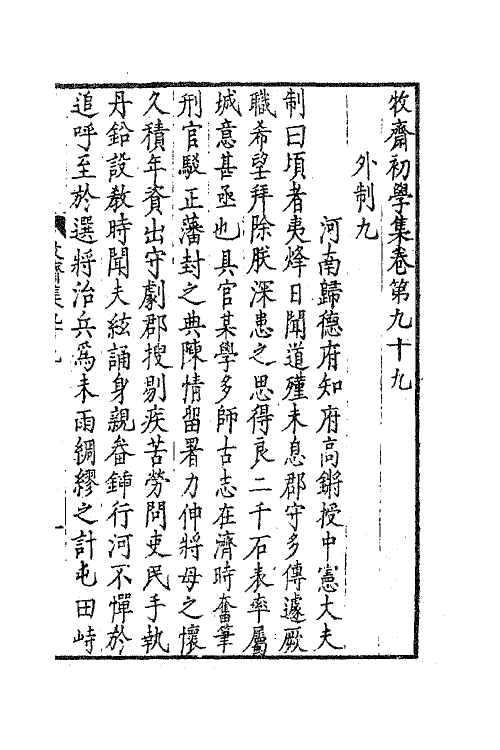 牧齋初學集卷第九十九
外制九
河南歸德府知府高鏘授中憲大夫
制曰頃者夷烽日聞道殣未息郡守多傳遽厥
職希望拜除朕深患之思得良二千石表率屬
城意甚亟也具官某學多師古志在濟時奮筆
刑官駮正藩封之典陳情留署力伸將母之懷
久積年資出守劇郡搜剔疾苦勞問吏民手執
丹鉛設教時聞夫絃誦身親畚鍤行河不憚於
追呼至於選將治兵爲未雨綢繆之計屯田峙